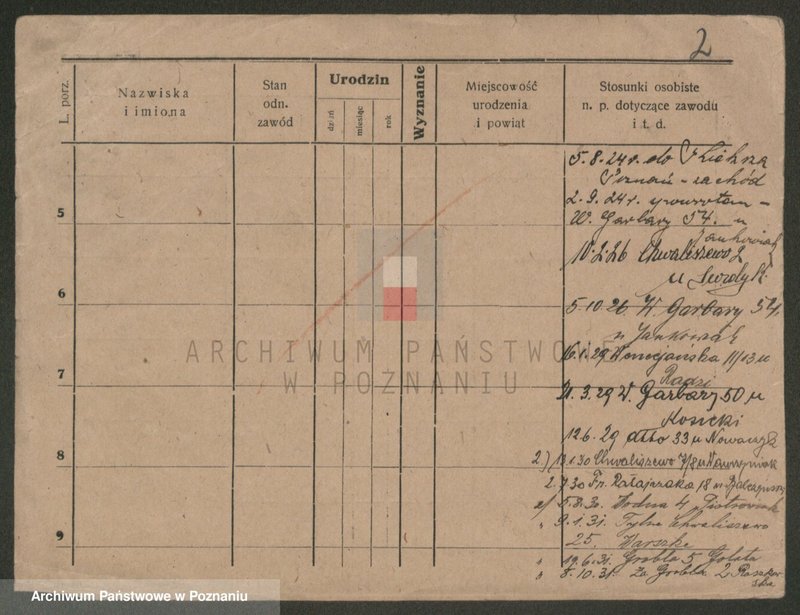 2
L. porz.
Nazwiska
i imiona
Stan
odn.
zawód
Urodzin
dzień
miesiąc
rok
Wyznanie
Miejscowość
urodzenia
i powiąt
Stosunki osobiste
n. p. dotyczące zawodu
i t. d.
5.8.24 r. do Kiekrza
Poznań - zachód
2.9.24 r. z powrotem -
5
W. Garbary 54. u
Jankowiak
10.2.26 Chwaliszewo 2
u
6
5.10.26 W. Garbary 54.
u Jankowiak
16.1.29 Wenecjańska 11/13 u
Radzi
7
W. Garbary 50 u
Kosicki
12.6.29 dtto 33 u Nowaczyk
8
2.) 13.1.30 Chwaliszewo 7/8 u Wawrzyniak
2.7.30 Fr. Ratajczaka 18 u
5.8.30. Wodna 4 Piotrowiak
" 9.1.31. Tylne Chwaliszewo
9
25. Warszke
" 19.6.31. Grobla 5 Golata
" 5.10.31. Za Groblą 2
ARCHIWUM PAŃSTWOWE
W POZNANIU
Archiwum Państwowe w Poznaniu